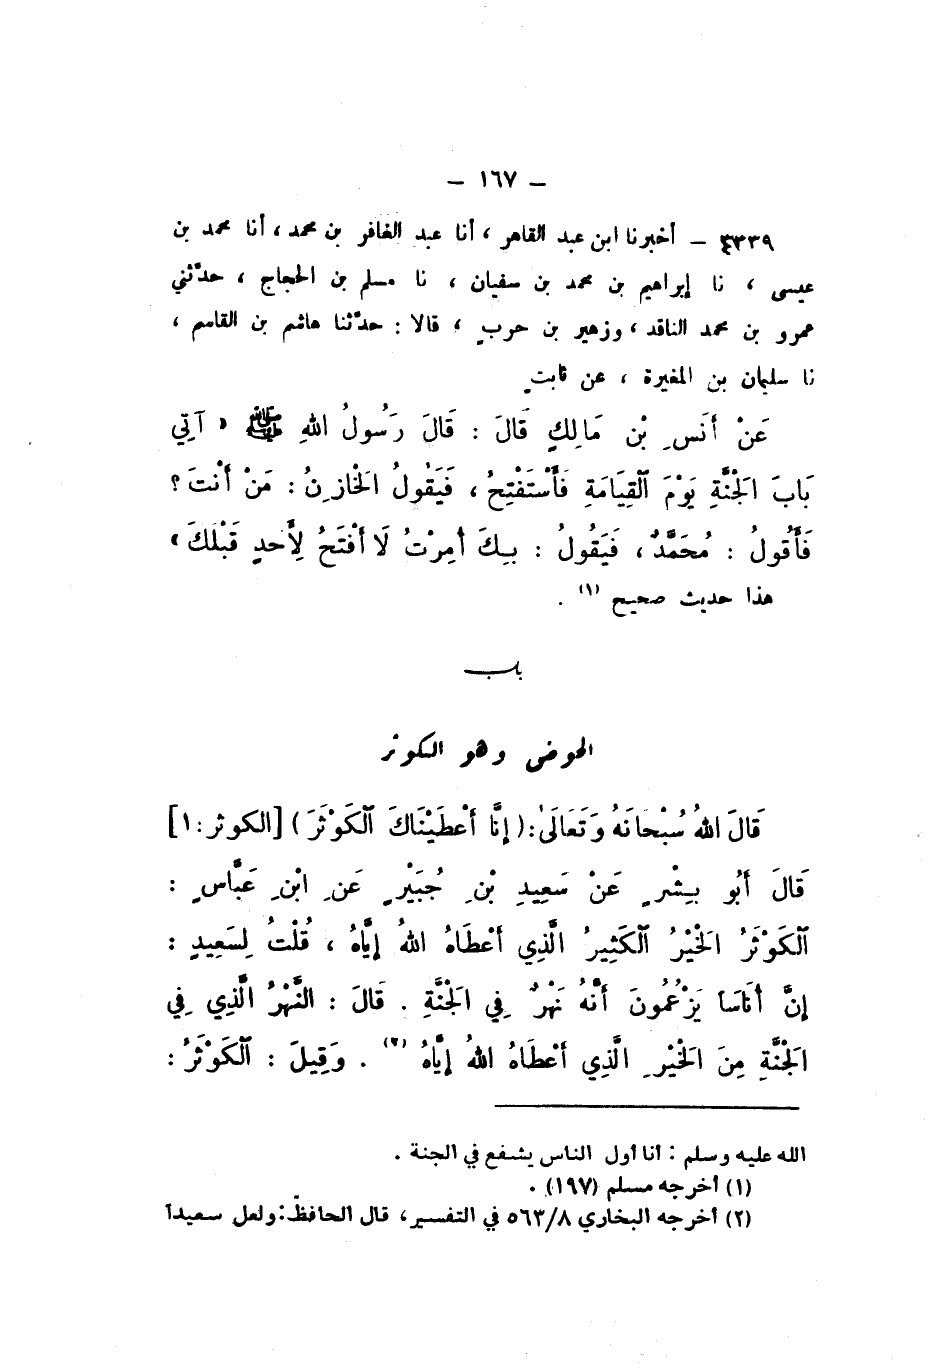 – ١٦٧ –
٤٣٣٩ – أخبرنا ابن عبد القاهر ، أنا عبد الغافر بن محمد ، أنا محمد بن
عيسى ، نا إبراهيم بن محمد بن سفيان ، نا مسلم بن الحجاج ، حدّثني
عمرو بن محمد الناقد ، وزهير بن حربٍ ، قالا : حدّثنا هاشم بن القاسم ،
نا سليمان بن المغيرة ، عن ثابتٍ
عَنْ أَنَسِ بْنِ مَالِكٍ قَالَ : قَالَ رَسُولُ اللهِ ﷺ « آتِي
بَابَ الْجَنَّةِ يَوْمَ الْقِيَامَةِ فَأَسْتَفْتِحُ ، فَيَقُولُ الْخَازِنُ : مَنْ أَنْتَ ؟
فَأَقُولُ : مُحَمَّدٌ ، فَيَقُولُ : بِكَ أُمِرْتُ لَا أَفْتَحُ لِأَحدٍ قَبْلَكَ »
هذا حديث صحيح (١) .
باب
الحوض وهو الكوثر
قَالَ اللهُ سُبْحَانَهُ وَتَعَالَىٰ : ( إِنَّا أَعْطَيْنَاكَ الْكَوْثَرَ ) [الكوثر : ١]
قَالَ أَبُو بِشْرٍ عَنْ سَعِيدِ بْنِ جُبَيْرٍ عَنِ ابْنِ عَبَّاسٍ :
الْكَوْثَرُ الْخَيْرُ الْكَثِيرُ الَّذِي أَعْطَاهُ اللهُ إِيَّاهُ ، قُلْتُ لِسَعِيدٍ :
إِنَّ أُنَاسَاً يَزْعُمُونَ أَنَّهُ نَهْرٌ فِي الْجَنَّةِ . قَالَ : النَّهْرُ الَّذِي فِي
الْجَنَّةِ مِنَ الْخَيْرِ الَّذِي أَعْطَاهُ اللهُ إِيَّاهُ (٢) . وَقِيلَ : الْكَوْثَرُ :
الله عليه وسلم : أنا أول الناس يشفع في الجنة .
(١) أخرجه مسلم (١٩٧) .
(٢) أخرجه البخاري ٥٦٣/٨ في التفسير ، قال الحافظ : ولعل سعيداً